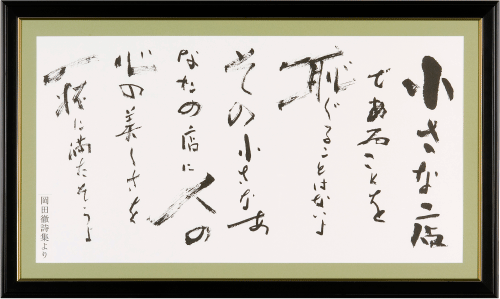 小さな店
であることを
恥じることはないよ
その小さなあ
なたの店に人の
心の美しさを
一杯に満たそうよ
岡田徹詩集より